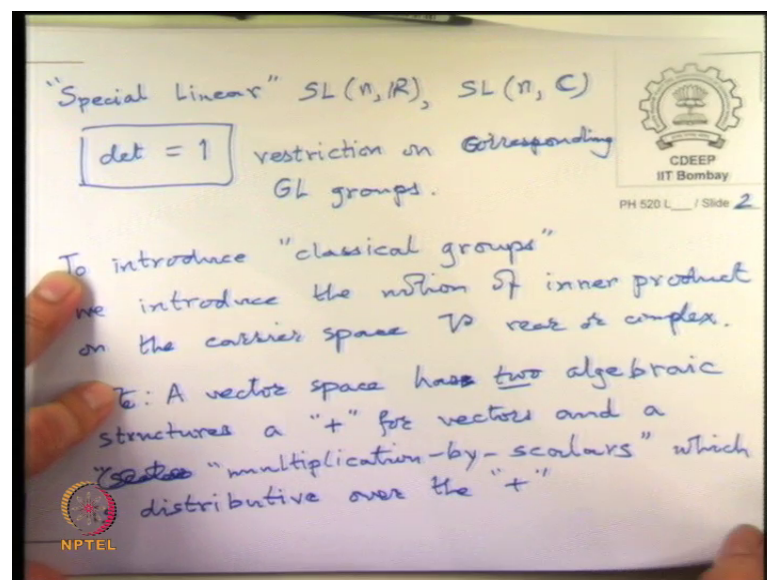 "Special Linear" SL(n, IR), SL(n, C)
det = 1 restriction on corresponding
GL groups.
CDEEP
IIT Bombay
PH 520 L___ / Slide 2
To introduce "classical groups"
we introduce the notion of inner product
on the carrier space V real or complex.
te: A vector space has two algebraic
structures a "+" for vectors and a
"multiplication-by-scalars" which
distributive over the "+"
NPTEL